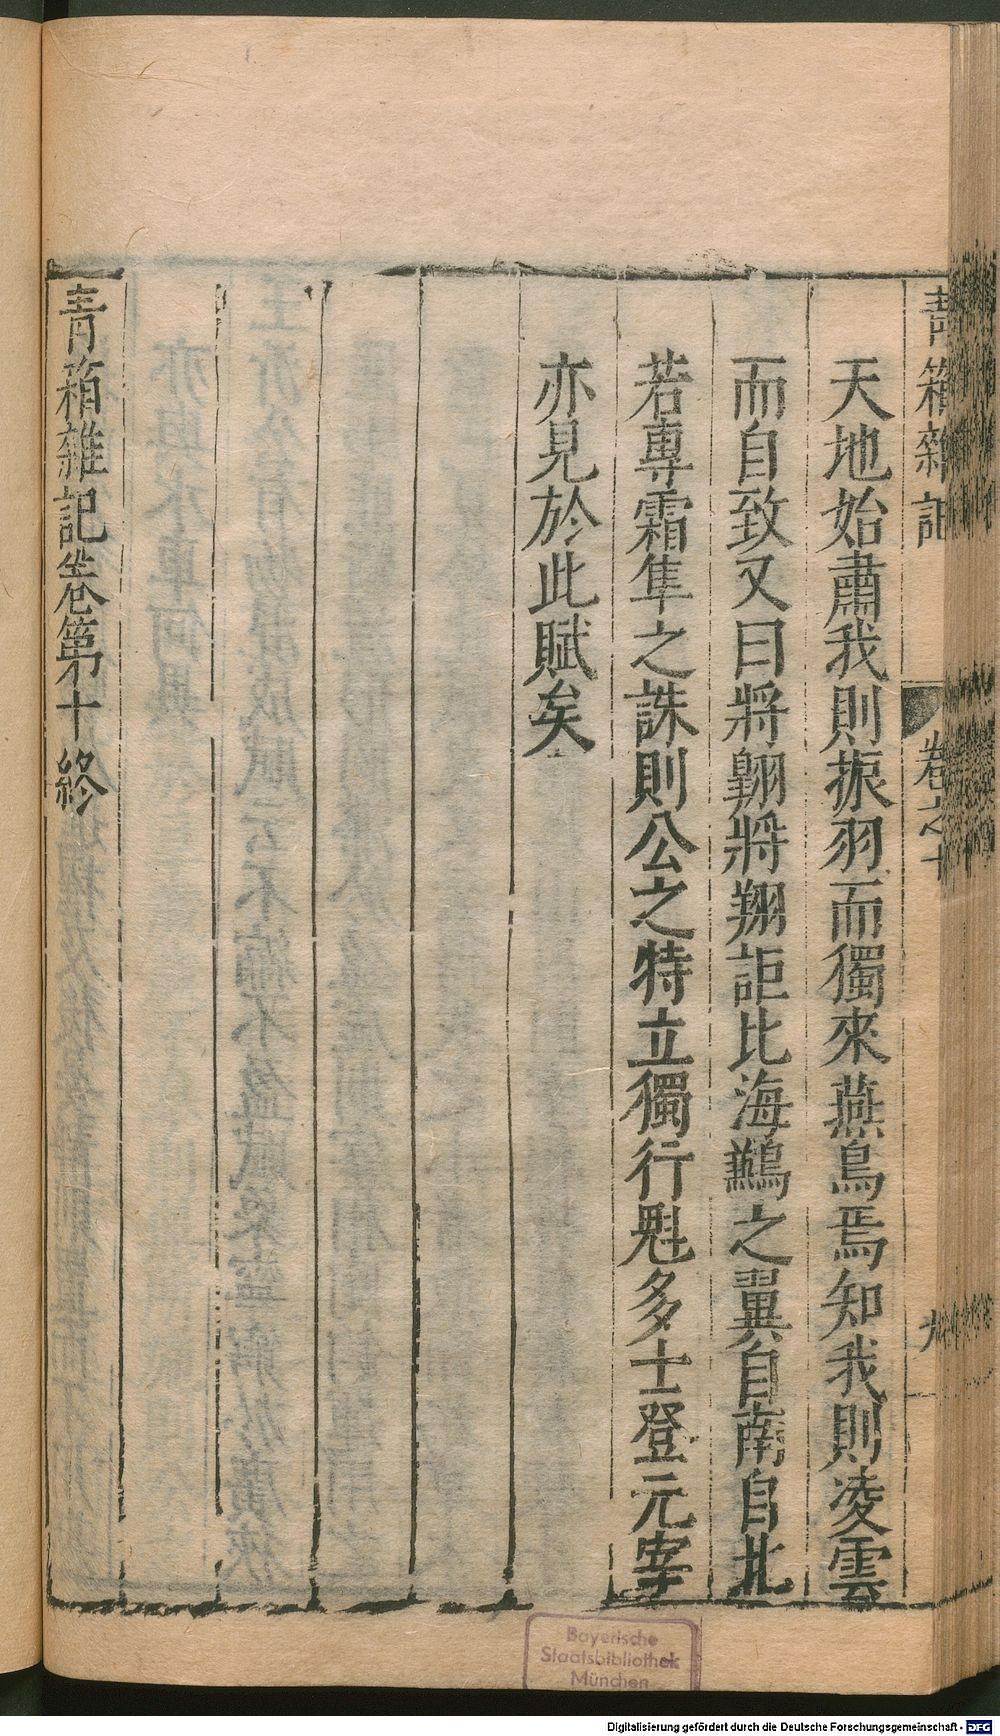 青箱雜記
卷之十
九
天地始肅我則振羽而獨來燕鳥焉知我則凌雲
而自致又曰將翱將翔詎比海鷀之翼自南自北
若專霜隼之誅則公之特立獨行魁多士登元宰
亦見於此賦矣
青箱雜記卷第十終
Bayerische
Staatsbibliothek
München
Digitalisierung gefördert durch die Deutsche Forschungsgemeinschaft - DFG